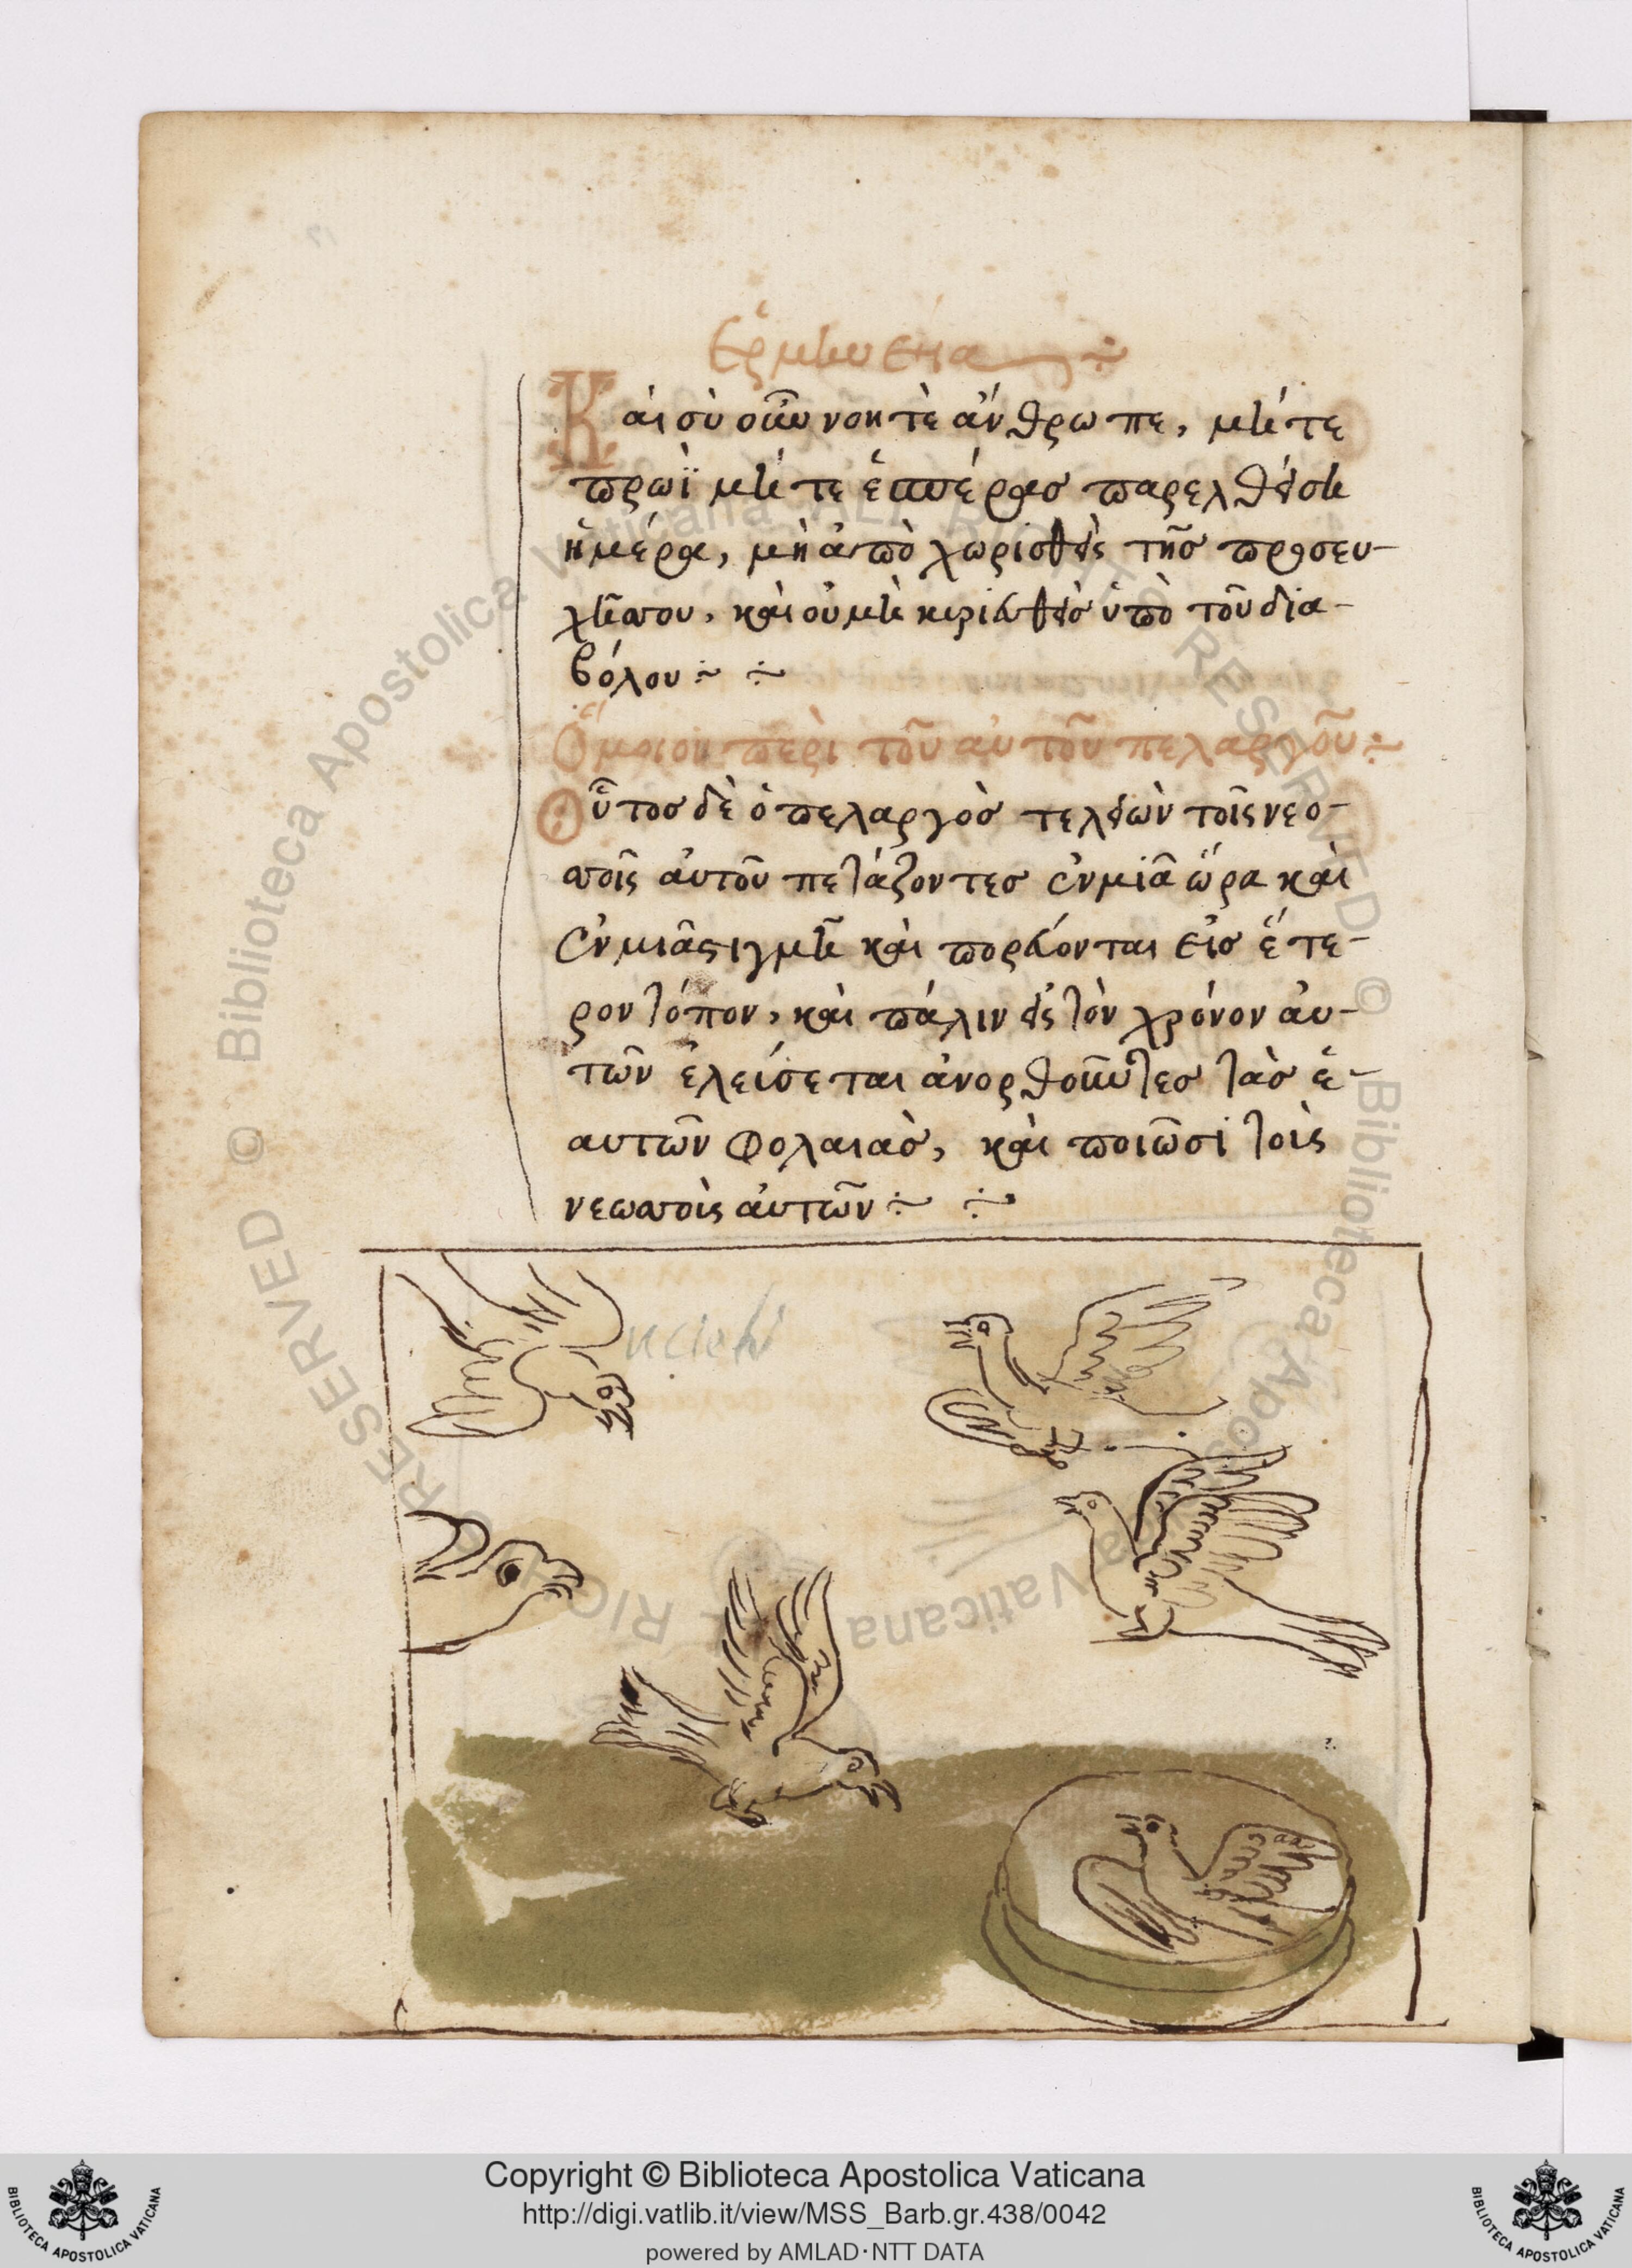 Ερμηνεῖα
Καὶ σὺ οὖν νοητὲ ἄνθρωπε, μήτε
πρωῒ μήτε ἑσπέρας παρελθέση
ἡμέρα, μὴ ἀπὸ χωρισθεὶς τῆς προσευ-
χῆσου, καὶ οὐ μὴ κυριευθεὶς ὑπὸ τοῦ δια-
βόλου
Ὅμοιον περὶ τοῦ αὐτοῦ πελαργοῦ
Οὗτος δὲ ὁ πελαργὸς τελειὼν τοῖς νεο-
σοῖς αὐτοῦ πετάζοντες ἐν μιᾶ ὥρα καὶ
ἐν μιᾶ στιγμῆ καὶ πορεύονται εἰς ἕτε-
ρον τόπον, καὶ πάλιν εἰς τὸν χρόνον αὐ-
τῶν ἐλείσεται ἀνορθοῦντες τὰς ἑ-
αυτῶν φολαιὰς, καὶ ποιῶσι τοὶς
νεωσοὶς αὐτῶν
Copyright © Biblioteca Apostolica Vaticana
http://digi.vatlib.it/view/MSS_Barb.gr.438/0042
powered by AMLAD·NTT DATA
BIBLIOTECA APOSTOLICA VATICANA
BIBLIOTECA APOSTOLICA VATICANA